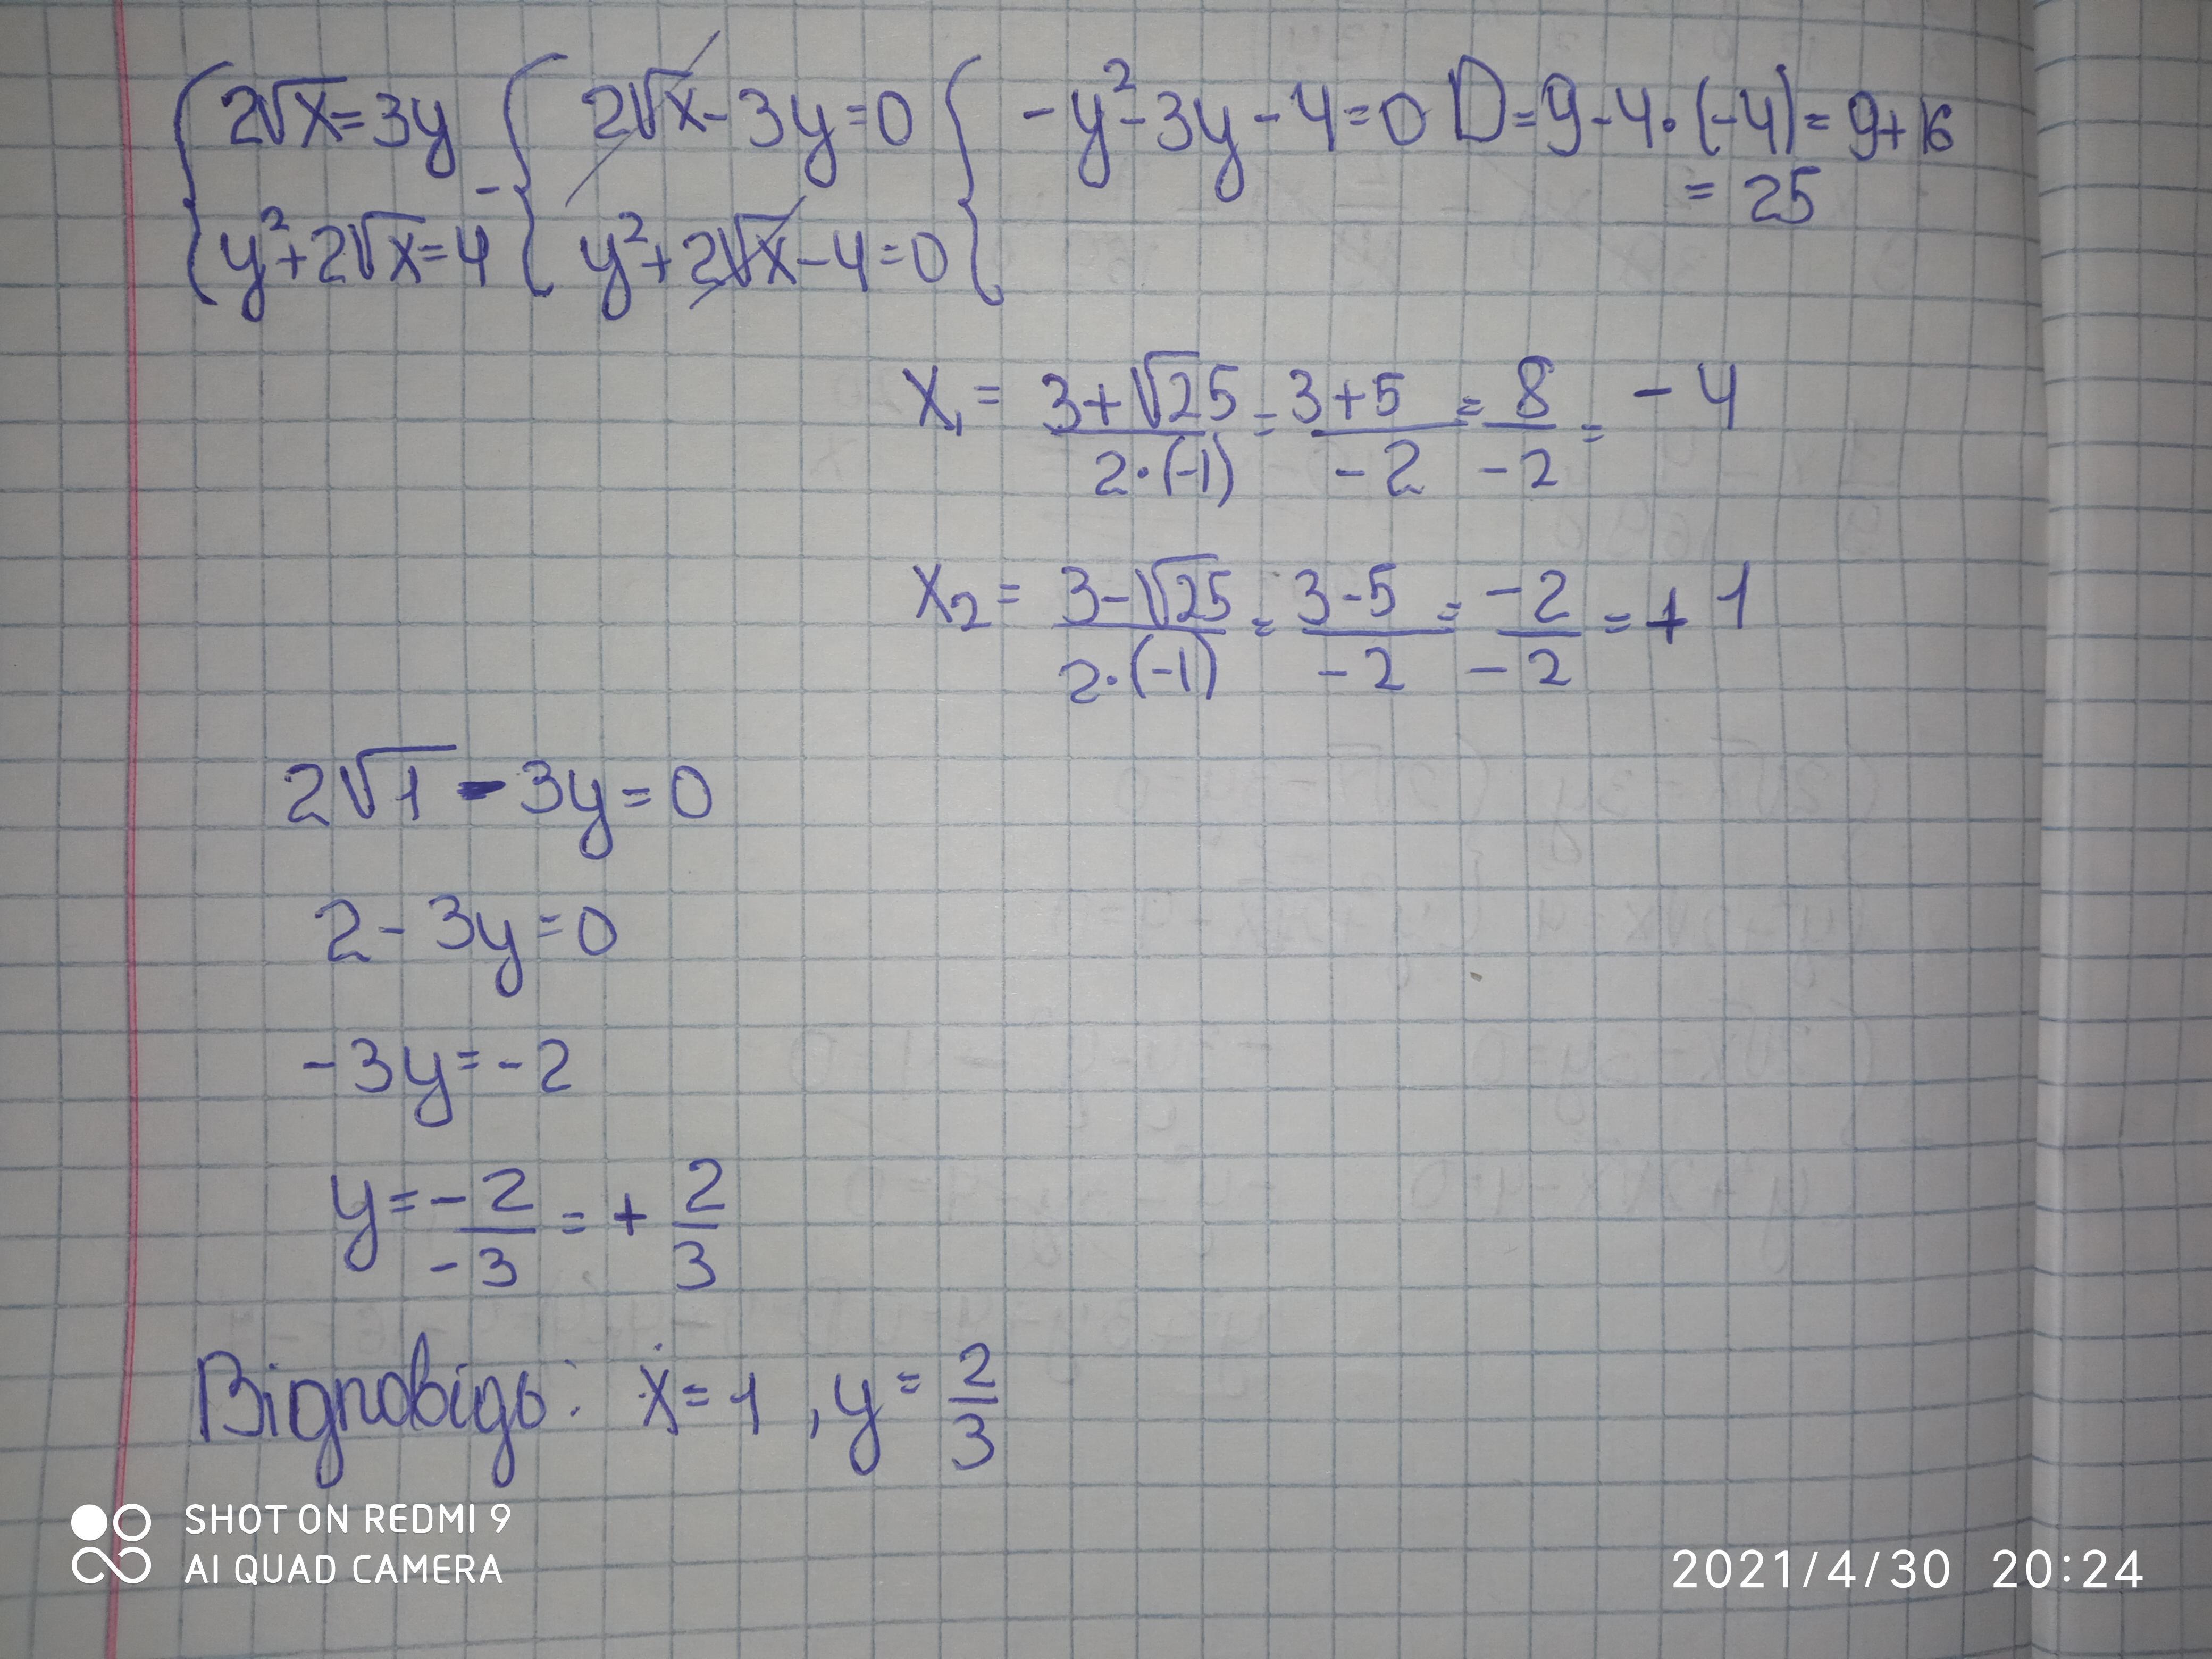 { 2√x = 3y { 2√x - 3y = 0 { -y² - 3y - 4 = 0 D = 9 - 4 · (-4) = 9 + 16
= 25
- { y² + 2√x = 4 { y² + 2√x - 4 = 0
x₁ = (3+√25)/(2·(-1)) = (3+5)/(-2) = 8/(-2) = -4
x₂ = (3-√25)/(2·(-1)) = (3-5)/(-2) = -2/-2 = +1
2√1 - 3y = 0
2 - 3y = 0
-3y = -2
y = -2/-3 = + 2/3
Відповідь: x = 1, y = 2/3
SHOT ON REDMI 9
AI QUAD CAMERA
2021/4/30 20:24